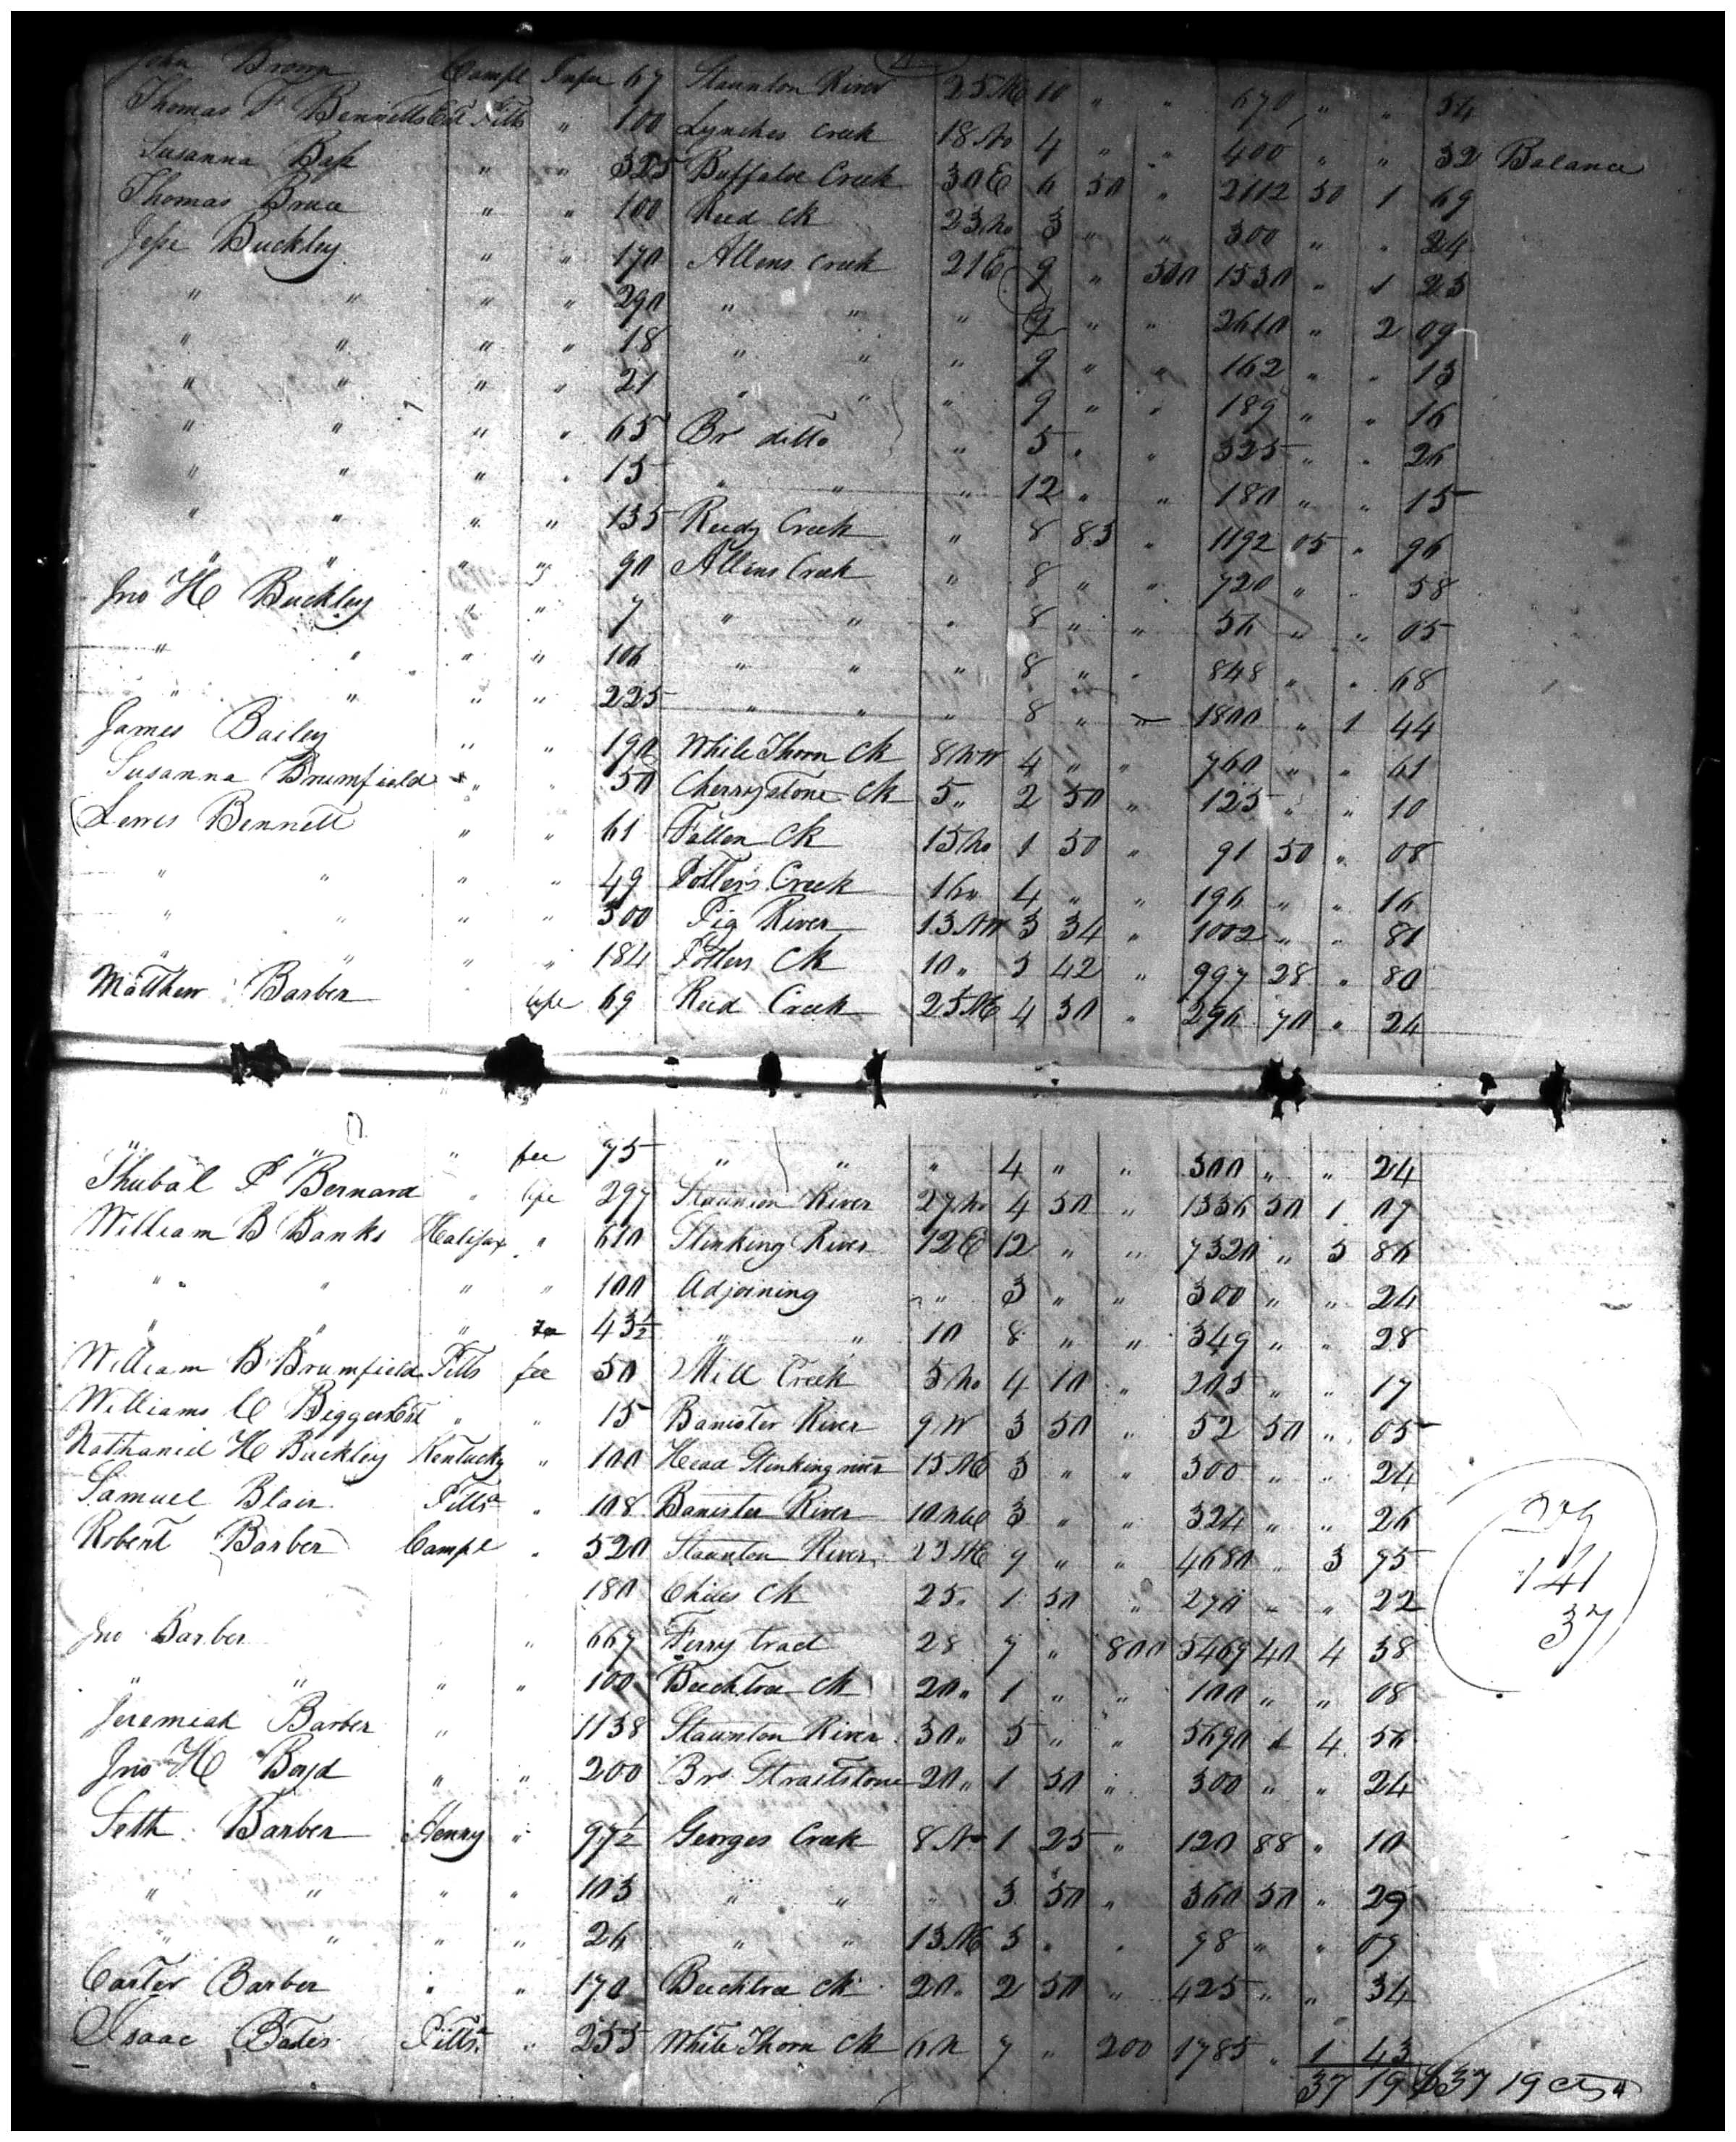 John Brown Campl 67 Staunton River 25 NE 10 " " 670 " " 54
Thomas F Bennetts Est Pitts " 100 Lynches Creek 18 No 4 " " 400 " " 32 Balance
Susanna Bass " " 325 Buffaloe Creek 30 E 6 50 " 2112 50 1 69
Thomas Bruce " " 100 Reed Ck 23 No 3 " " 300 " " 24
Jesse Buckley " " 170 Allens Creek 21 E 9 " 500 1530 " 1 23
" " " " 290 " " " 9 " " 2610 " 2 09
" " " " 18 " " " 9 " " 162 " " 13
" " " " 21 " " " 9 " " 189 " " 16
" " " " 65 Br ditto " 5 " " 325 " " 26
" " " " 15 " " " 12 " " 180 " " 15
" " " " 135 Reedy Creek " 8 83 " 1192 05 " 96
" " " " 90 Allens Creek " 8 " " 720 " " 58
Jno H Buckley " " 7 " " " 8 " " 56 " " 05
" " " " 106 " " " 8 " " 848 " " 68
" " " " 225 " " " 8 " " 1800 " 1 44
James Bailey " " 190 White Thorn Ck 8 NW 4 " " 760 " " 61
Susanna Brumfield " " 50 Cherrystone Ck 5 " 2 50 " 125 " " 10
Lewis Bennett " " 61 Fallen Ck 15 No 1 50 " 91 50 " 08
" " " " 49 Potters Creek 16 " 4 " " 196 " " 16
" " " " 300 Pig River 13 NW 3 34 " 1002 " " 81
" " " " 184 Potters Ck 10 " 5 42 " 997 28 " 80
Matthew Barber " life 69 Reed Creek 25 NE 4 30 " 296 70 " 24
" " " fee 75 " " " 4 " " 300 " " 24
Shubal P Bernard " life 297 Staunton River 27 No 4 50 " 1336 50 1 07
William B Banks Halifax " 610 Stinking River 12 E 12 " " 7320 " 5 86
" " " " 100 Adjoining " " 3 " " 300 " " 24
" " " 43½ " " 10 8 " " 349 " " 28
William B Brumfield Pitts fee 50 Mill Creek 5 No 4 10 " 205 " " 17
Williams C Biggers Est " " 15 Banister River 9 W 3 50 " 52 50 " 05
Nathaniel H Buckley Kentucky " 100 Head Stinking river 15 NE 3 " " 300 " " 24
Samuel Blair Pitts " 108 Banister River 10 3 " " 324 " " 26
Robert Barber Campl " 520 Staunton River 23 NE 9 " " 4680 " 3 75
180 Chiles Ck 25 " 1 50 " 270 " " 22
Jno Barber " 667 Ferry tract 28 7 " 800 5469 40 4 38
" " " " 100 Beechtree Ck 20 " 1 " " 100 " " 08
Jeremiah Barber " 1138 Staunton River 30 " 5 " " 5690 " 4 56
Jno H Boyd " " 200 Brs Straitstone 20 " 1 50 " 300 " " 24
Seth Barber Henry " 97½ Georges Creek 8 No 1 25 " 120 88 " 10
" " " " 103 " " " 3 50 " 360 50 " 29
" " " " 26 " " 13 NE 3 " " 98 " " 07
Carter Barber " " 170 Beechtree Ck 20 " 2 50 " 425 " " 34
Isaac Bates Pitts " 255 White Thorn Ck 6 N 7 " 200 1785 " 1 43
37 19 $37 19 cts
141
37